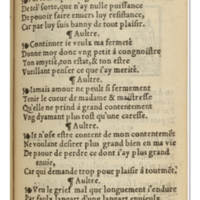 De telz sorte, que n'ay nulle puissance
De pouoir faire enuers luy resistance,
Car par luy suis banny de tout plaisir.
¶ Aultre.
Continuer ie veulx ma fermeté
Donne moy donc vng petit à congnoistre
Ton amytié, non estat, & ton estre
Vueillant penser ce que i'ay merité.
¶ Aultre.
Iamais amour ne peult si fermement
Tenir le cueur de madame & maistresse
Qu'elle ne prind à grand contentement
Vng dyamant plus tost qu'une caresse.
¶ Aultre.
Ie n'ose estre content de mon contentemēt
Ne voulant desirer plus grand bien en ma vie
De paour de perdre ce dont s'ay plus grand
enuie,
Car qui demande trop pour plaisir a tourmēt.
¶ Aultre.
Veu le grief mal que longuement i'endure
Par faulx langart d'une langart ennieulx